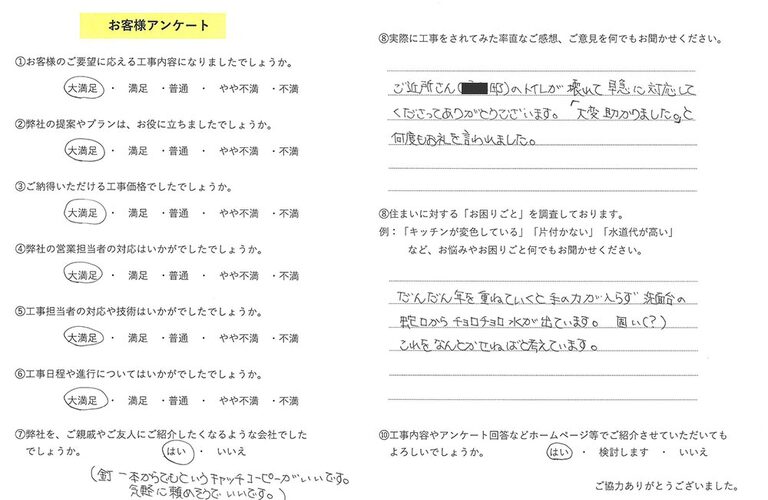 お客様アンケート
①お客様のご要望に応える工事内容になりましたでしょうか。
大満足 ・ 満足 ・普通 ・ やや不満 ・不満
②弊社の提案やプランは、お役に立ちましたでしょうか。
大満足 ・ 満足 ・普通 ・ やや不満 ・不満
③ご納得いただける工事価格でしたでしょうか。
大満足 ・ 満足 ・普通 ・ やや不満 ・不満
④弊社の営業担当者の対応はいかがでしたでしょうか。
大満足 ・ 満足 ・普通 ・ やや不満 ・不満
⑤工事担当者の対応や技術はいかがでしたでしょうか。
大満足 ・ 満足 ・普通 ・ やや不満 ・不満
⑥工事日程や進行についてはいかがでしたでしょうか。
大満足 ・ 満足 ・普通 ・ やや不満 ・不満
⑦弊社を、ご親戚やご友人にご紹介したくなるような会社でした
でしょうか。 はい ・ いいえ
(釘一本からでもというキャッチコーピーがいいです。
気軽に頼めそうでいいです。)
⑧実際に工事をされてみた率直なご感想、ご意見を何でもお聞かせください。
ご近所さん(邸)のトイレが壊れて早急に対応して
くださってありがとうございます。「大変助かりました。」と
何度もお礼を言われました。
⑧住まいに対する「お困りごと」を調査しております。
例：「キッチンが変色している」「片付かない」「水道代が高い」
など、お悩みやお困りごと何でもお聞かせください。
だんだん年を重ねていくと手の力が入らず洗面台の
蛇口からチョロチョロ水が出ています。 固い(?)
これをなんとかせねばと考えています。
⑩工事内容やアンケート回答などホームページ等でご紹介させていただいても
よろしいでしょうか。 はい ・ 検討します ・ いいえ
ご協力ありがとうございました。